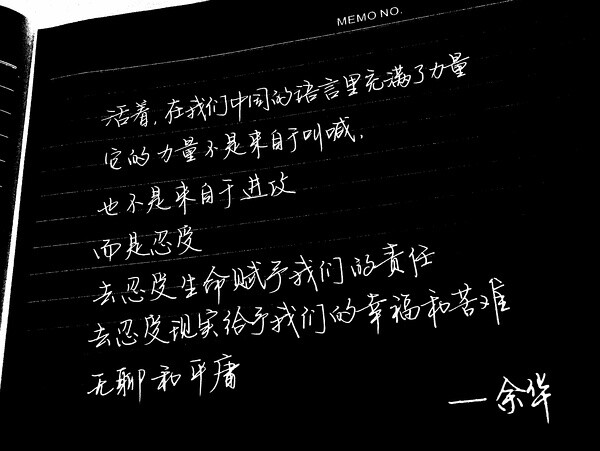 MEMO NO.
活着,在我们中国的语言里充满了力量
它的力量不是来自于叫喊,
也不是来自于进攻
而是忍受
去忍受生命赋予我们的责任
去忍受现实给予我们的幸福和苦难
无聊和平庸
——余华